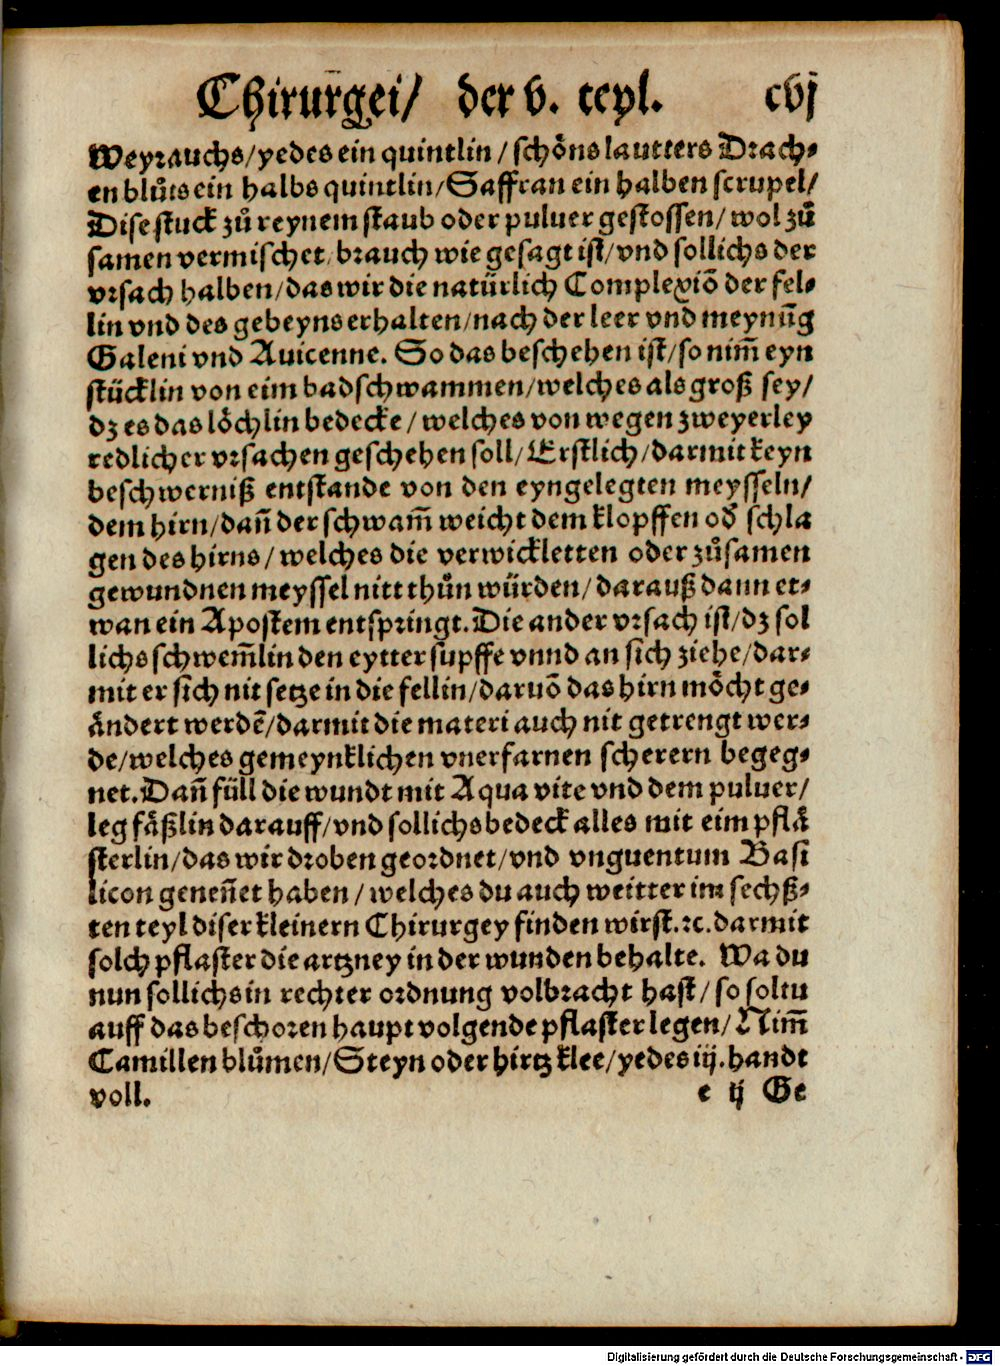 Chirurgei/ der v. teyl. cvj
Weyrauchs/yedes ein quintlin/schöns lautters Drach⸗
en blůts ein halbs quintlin/Saffran ein halben scrupel/
Dise stuck zů reynem staub oder puluer gestossen/wol zů
samen vermischet/brauch wie gesagt ist/vnd sollichs der
vrsach halben/das wir die natürlich Complexiō der fel⸗
lin vnd des gebeyns erhalten/nach der leer vnd meynūg
Galeni vnd Auicenne. So das beschehen ist/so nim̄ eyn
stücklin von eim badschwammen/welches als groß sey/
dz es das löchlin bedecke/welches von wegen zweyerley
redlicher vrsachen geschehen soll/Erstlich/darmit keyn
beschwerniß entstande von den eyngelegten meysseln/
dem hirn/dañ der schwam̄ weicht dem klopffen oď schla
gen des hirns/welches die verwickletten oder zůsamen
gewundnen meyssel nitt thůn würden/darauß dann et⸗
wan ein Apostem entspringt. Die ander vrsach ist/dz sol
lichs schwem̄lin den eytter supffe vnnd an sich ziehe/dar⸗
mit er sich nit setze in die fellin/daruō das hirn möcht ge⸗
ändert werdē/darmit die materi auch nit getrengt wer⸗
de/welches gemeynklichen vnerfarnen scherern begeg⸗
net. Dañ füll die wundt mit Aqua vite vnd dem puluer/
leg fäßlin darauff/vnd sollichs bedeck alles mit eim pflä
sterlin/das wir droben geordnet/vnd vnguentum Basi
licon geneñet haben/welches du auch weitter im sechß⸗
ten teyl diser kleinern Chirurgey finden wirst.ꝛc. darmit
solch pflaster die artzney in der wunden behalte. Wa du
nun sollichs in rechter ordnung volbracht hast/so soltu
auff das beschoren haupt volgende pflaster legen/Nim̄
Camillen blůmen/Steyn oder hirtz klee/yedes iij. handt
voll. e ij Ge
Digitalisierung gefördert durch die Deutsche Forschungsgemeinschaft - DFG